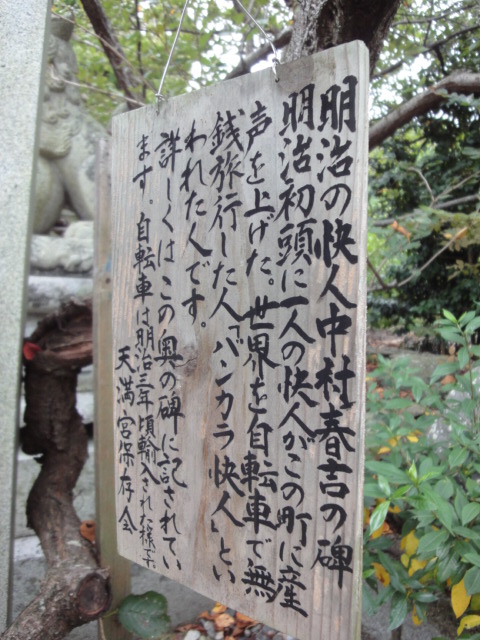 明治の快人中村春吉の碑
明治初頭に一人の快人がこの町に産
声を上げた。世界を自転車で無
銭旅行した人「バンカラ快人」とい
われた人です。
詳しくはこの奥の碑に記されてい
ます。自転車は明治三年頃輸入された様子
天満宮保存会